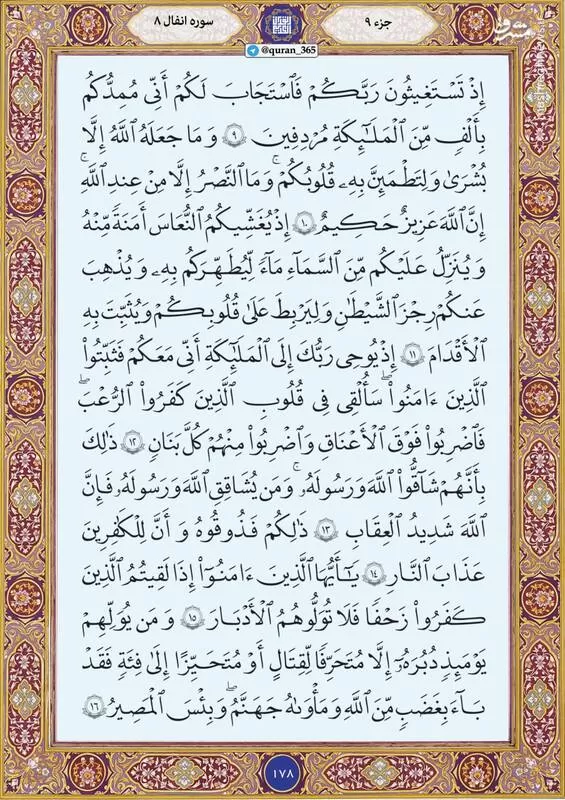 جزء ۹
سوره انفال ۸
@quran_365
إِذْ تَسْتَغِيثُونَ رَبَّكُمْ فَٱسْتَجَابَ لَكُمْ أَنِّى مُمِدُّكُم
بِأَلْفٍ مِّنَ ٱلْمَلَٰٓئِكَةِ مُرْدِفِينَ ۹ وَمَا جَعَلَهُ ٱللَّهُ إِلَّا
بُشْرَىٰ وَلِتَطْمَئِنَّ بِهِۦ قُلُوبُكُمْ ۚ وَمَا ٱلنَّصْرُ إِلَّا مِنْ عِندِ ٱللَّهِ ۚ
إِنَّ ٱللَّهَ عَزِيزٌ حَكِيمٌ ۱۰ إِذْ يُغَشِّيكُمُ ٱلنُّعَاسَ أَمَنَةً مِّنْهُ
وَيُنَزِّلُ عَلَيْكُم مِّنَ ٱلسَّمَآءِ مَآءً لِّيُطَهِّرَكُم بِهِۦ وَيُذْهِبَ
عَنكُمْ رِجْزَ ٱلشَّيْطَٰنِ وَلِيَرْبِطَ عَلَىٰ قُلُوبِكُمْ وَيُثَبِّتَ بِهِ
ٱلْأَقْدَامَ ۱۱ إِذْ يُوحِى رَبُّكَ إِلَى ٱلْمَلَٰٓئِكَةِ أَنِّى مَعَكُمْ فَثَبِّتُوا۟
ٱلَّذِينَ ءَامَنُوا۟ ۚ سَأُلْقِى فِى قُلُوبِ ٱلَّذِينَ كَفَرُوا۟ ٱلرُّعْبَ
فَٱضْرِبُوا۟ فَوْقَ ٱلْأَعْنَاقِ وَٱضْرِبُوا۟ مِنْهُمْ كُلَّ بَنَانٍ ۱۲ ذَٰلِكَ
بِأَنَّهُمْ شَآقُّوا۟ ٱللَّهَ وَرَسُولَهُۥ ۚ وَمَن يُشَاقِقِ ٱللَّهَ وَرَسُولَهُۥ فَإِنَّ
ٱللَّهَ شَدِيدُ ٱلْعِقَابِ ۱۳ ذَٰلِكُمْ فَذُوقُوهُ وَأَنَّ لِلْكَٰفِرِينَ
عَذَابَ ٱلنَّارِ ۱۴ يَٰٓأَيُّهَا ٱلَّذِينَ ءَامَنُوٓا۟ إِذَا لَقِيتُمُ ٱلَّذِينَ
كَفَرُوا۟ زَحْفًا فَلَا تُوَلُّوهُمُ ٱلْأَدْبَارَ ۱۵ وَمَن يُوَلِّهِمْ
يَوْمَئِذٍ دُبُرَهُۥٓ إِلَّا مُتَحَرِّفًا لِّقِتَالٍ أَوْ مُتَحَيِّزًا إِلَىٰ فِئَةٍ فَقَدْ
بَآءَ بِغَضَبٍ مِّنَ ٱللَّهِ وَمَأْوَىٰهُ جَهَنَّمُ ۖ وَبِئْسَ ٱلْمَصِيرُ ۱۶
۱۷۸